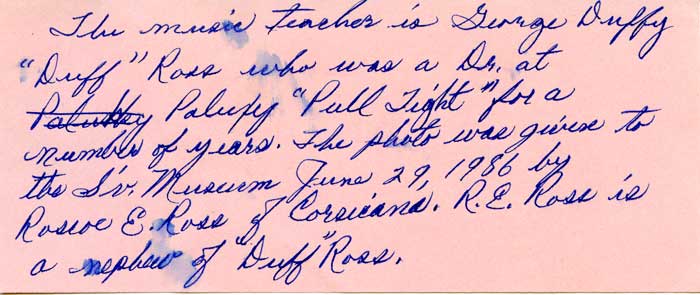 The music teacher is George Duffy
"Duff" Ross who was a Dr. at
Paluxy "Pull Tight" for a
number of years. The photo was given to
the S'v. Museum June 29, 1986 by
Roscoe E. Ross of Corsicana. R.E. Ross is
a nephew of "Duff" Ross.